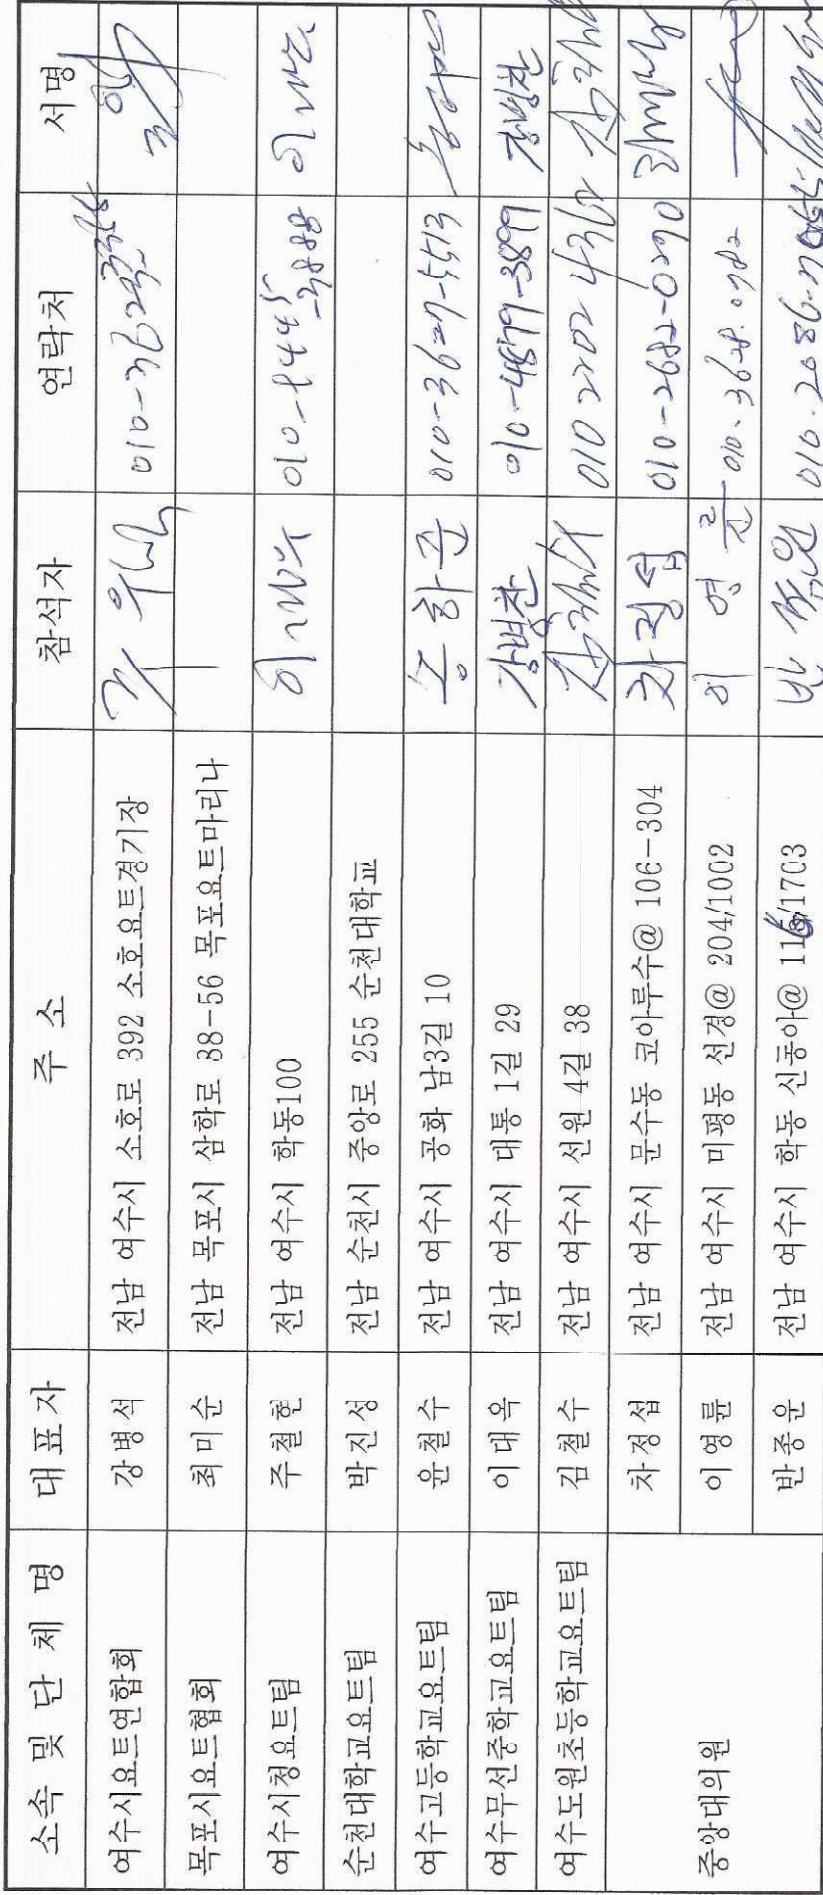 소속 및 단 체 명 대 표 자 주 소 참석자 연락처 서 명
여수시요트연합회 강 병 석 전남 여수시 소호로 392 소호요트경기장
목포시요트협회 최 미 순 전남 목포시 삼학로 38-56 목포요트마리나
여수시청요트팀 주 철 현 전남 여수시 학동100
순천대학교요트팀 박 진 성 전남 순천시 중앙로 255 순천대학교
여수고등학교요트팀 윤 철 수 전남 여수시 공화 남3길 10 송하준 010-3627-5513
여수무선중학교요트팀 이 대 옥 전남 여수시 대통 1길 29 강병찬 010-4879-3899 강병찬
여수도원초등학교요트팀 김 철 수 전남 여수시 선원 4길 38
중앙대의원 차 정 섭 전남 여수시 문수동 코아루수@ 106-304 차정섭 010-2682-0290
이 영 륜 전남 여수시 미평동 선경@ 204/1002 이 영 륜 010.3628.0782
반 종 운 전남 여수시 학동 신동아@ 116/1703